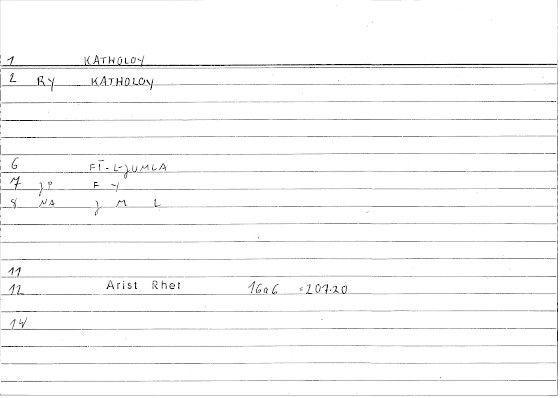 1 KATHOLOY
2 RY KATHOLOY
6 FĪ-L-JUMLA
7 JP F Y
8 NA J M L
11
12 Arist Rhet 16a6 =207.20
14